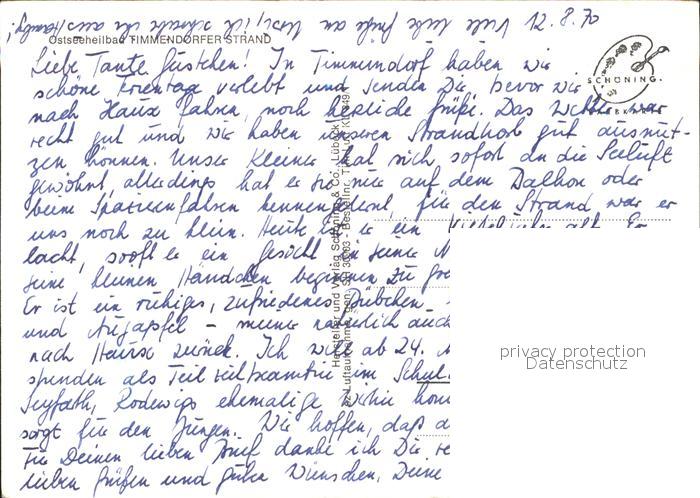 12.8.70
Viele liebe Grüße an Uwe, ich schreibe ihr aus Hamburg!
Ostseeheilbad TIMMENDORFER STRAND
SCHÖNING
Liebe Tante Gustchen! In Timmendorf haben wir
schöne Ferientage verlebt und senden Dir, bevor wir
nach Hause fahren, noch herzliche Grüße. Das Wetter war
recht gut und wir haben unseren Strandkorb gut ausnut-
zen können. Unser Kleiner hat sich sofort an die Seeluft
gewöhnt, allerdings hat er sie nur auf dem Balkon oder
beim Spazierenfahren kennengelernt, für den Strand war er
uns noch zu klein. Heute ist er ein Vierteljahr alt. Er
lacht, sooft er ein Gesicht in seine
seine kleinen Händchen beginnen zu
Er ist ein ruhiges, zufriedenes Bübchen
und Augapfel – meiner natürlich auch
nach Hause zurück. Ich will ab 24.
spenden als Teilzeitbeamtin im Schul
Seyfath, Rodewigs ehemalige
sorgt für den Jungen. Wir hoffen, daß
Für Deinen lieben Brief danke ich Dir
lieben Grüßen und guten Wünschen, Deine
Hersteller und Verlag Schöning & Co., Lübeck
privacy protection
Datenschutz